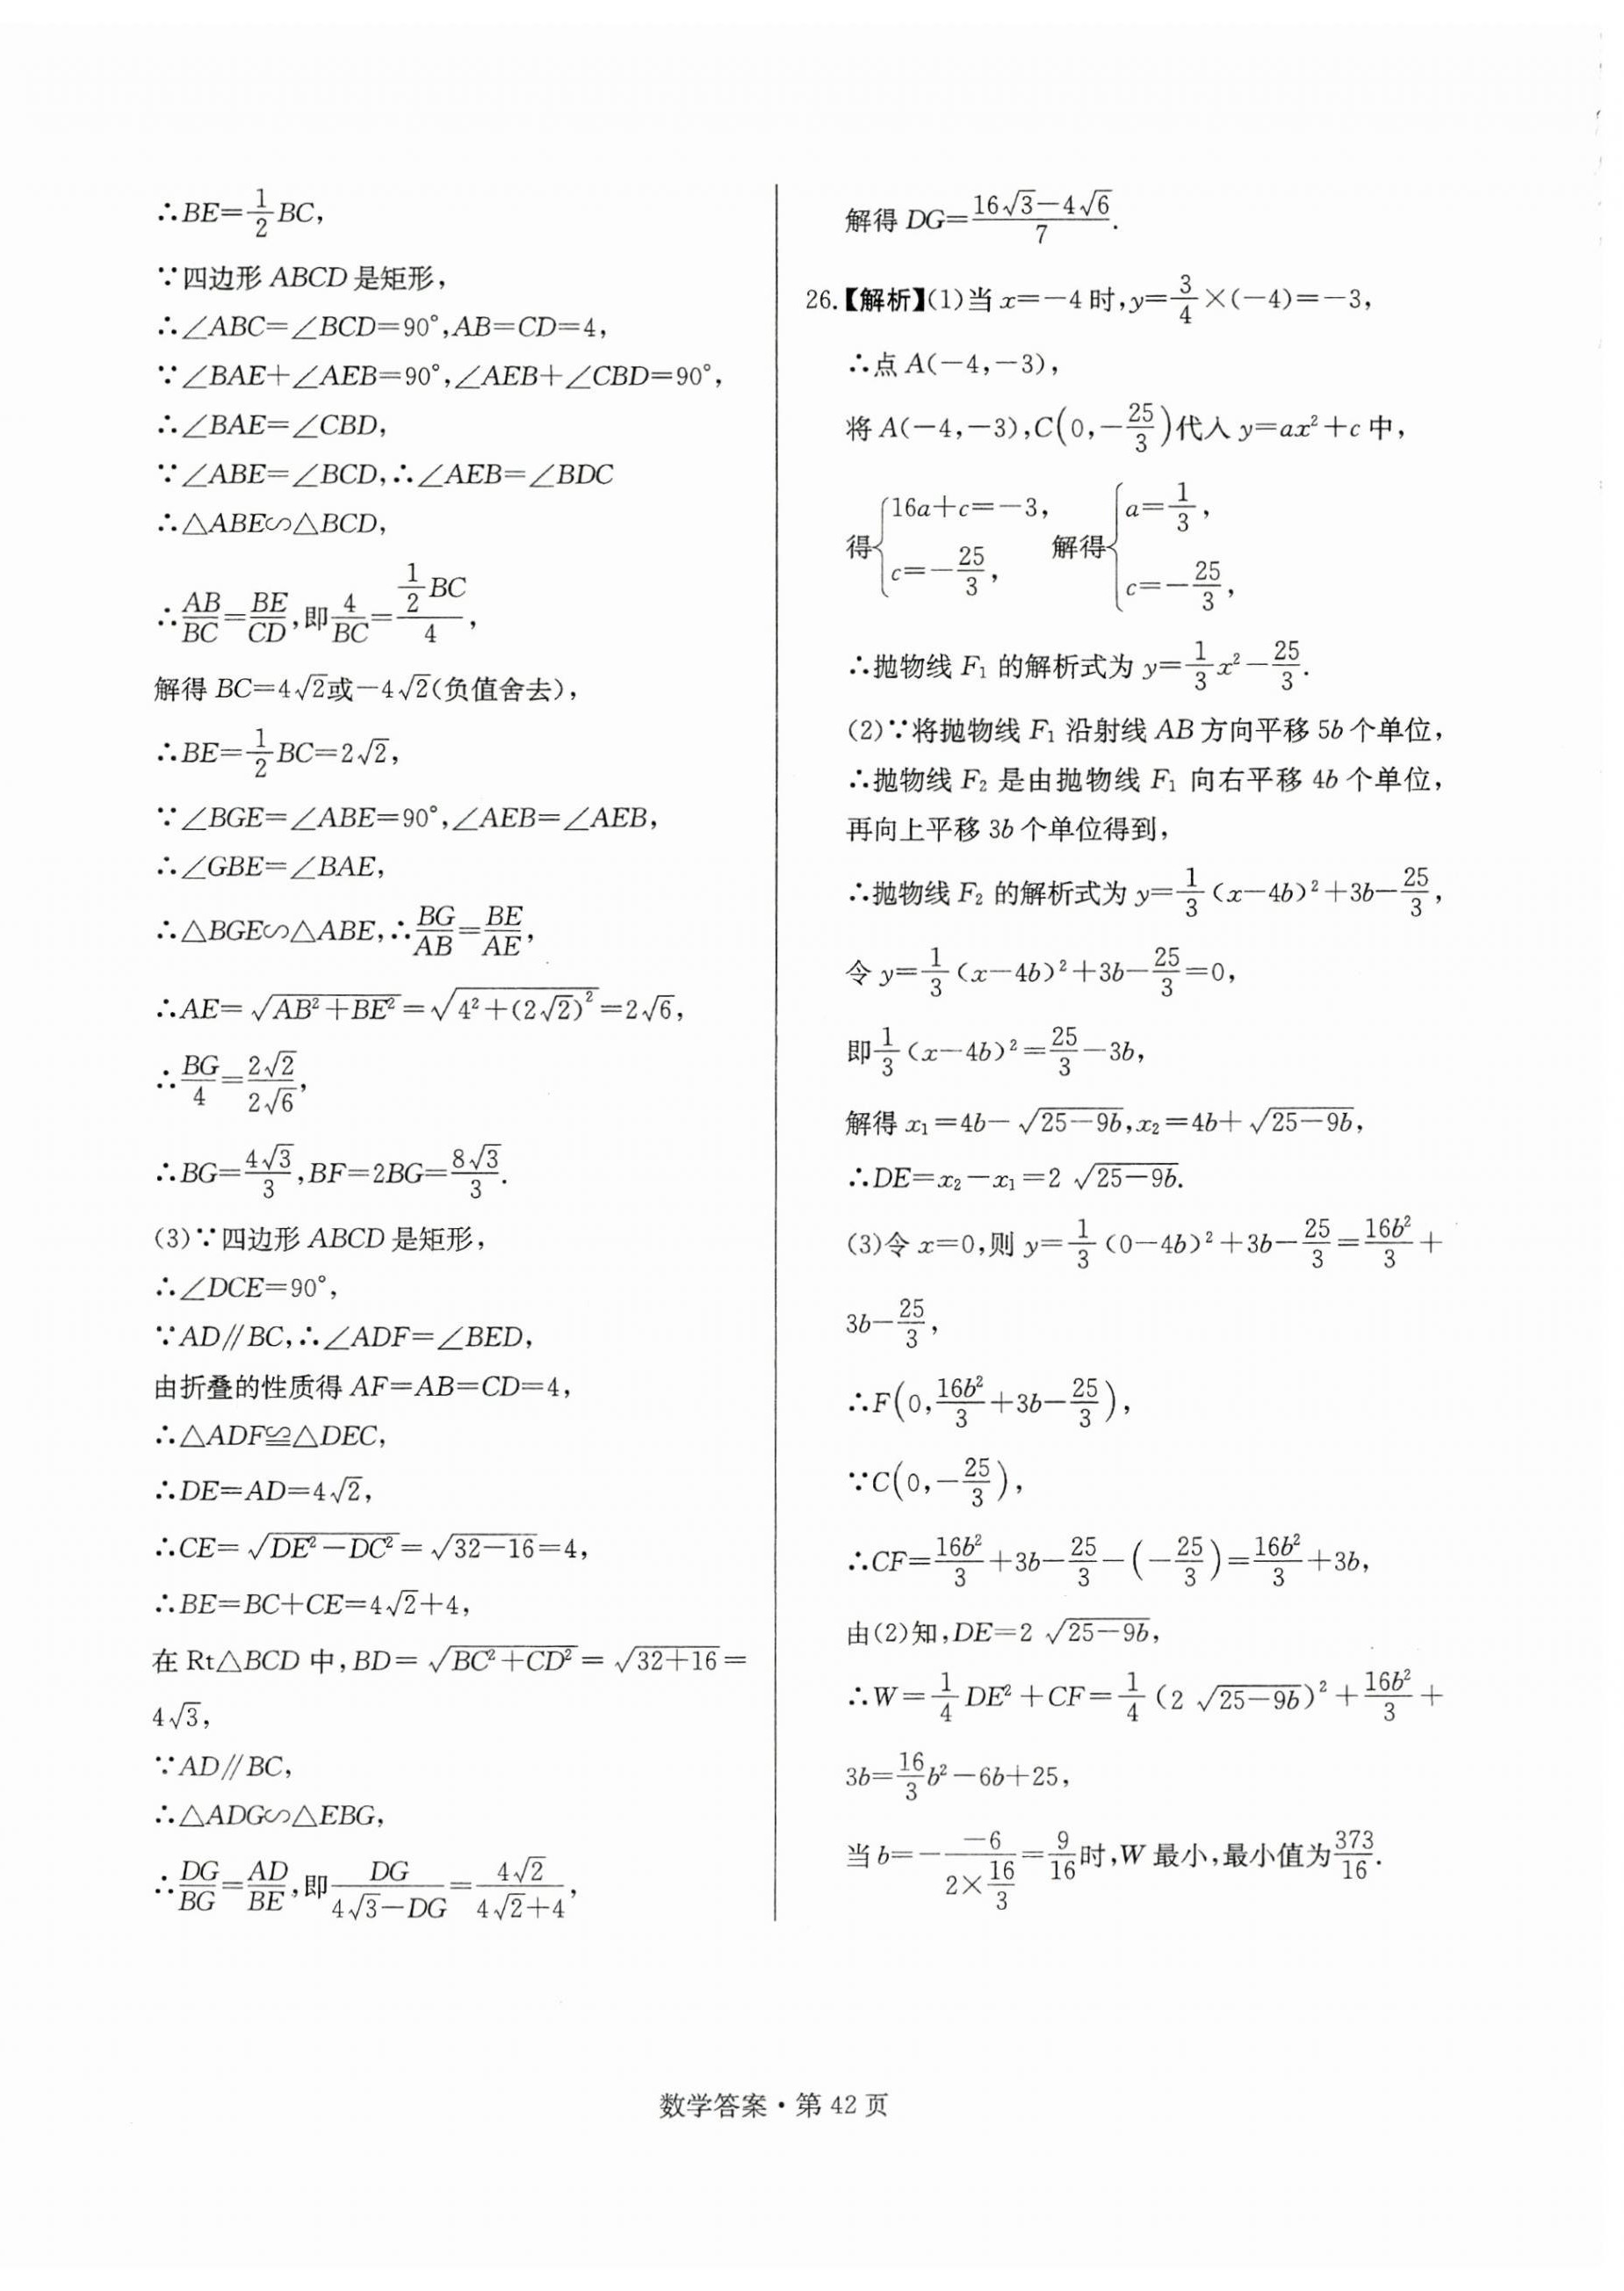 ∴BE=\frac{1}{2}BC,
∵四边形 ABCD 是矩形,
∴∠ABC=∠BCD=90°,AB=CD=4,
∵∠BAE+∠AEB=90°,∠AEB+∠CBD=90°,
∴∠BAE=∠CBD,
∵∠ABE=∠BCD,∴∠AEB=∠BDC
∴△ABE∽△BCD,
∴\frac{AB}{BC}=\frac{BE}{CD},即\frac{4}{BC}=\frac{\frac{1}{2}BC}{4},
解得 BC=4√2或-4√2(负值舍去),
∴BE=\frac{1}{2}BC=2√2,
∵∠BGE=∠ABE=90°,∠AEB=∠AEB,
∴∠GBE=∠BAE,
∴△BGE∽△ABE,∴\frac{BG}{AB}=\frac{BE}{AE},
∴AE=\sqrt{AB²+BE²}=\sqrt{4²+(2√2)²}=2√6,
∴\frac{BG}{4}=\frac{2√2}{2√6},
∴BG=\frac{4√3}{3},BF=2BG=\frac{8√3}{3}.
(3)∵四边形 ABCD 是矩形,
∴∠DCE=90°,
∵AD∥BC,∴∠ADF=∠BED,
由折叠的性质得 AF=AB=CD=4,
∴△ADF≌△DEC,
∴DE=AD=4√2,
∴CE=\sqrt{DE²-DC²}=\sqrt{32-16}=4,
∴BE=BC+CE=4√2+4,
在 Rt△BCD 中,BD=\sqrt{BC²+CD²}=\sqrt{32+16}=
4√3,
∵AD∥BC,
∴△ADG∽△EBG,
∴\frac{DG}{BG}=\frac{AD}{BE},即\frac{DG}{4√3-DG}=\frac{4√2}{4√2+4},
解得 DG=\frac{16√3-4√6}{7}.
26.【解析】(1)当 x=-4 时,y=\frac{3}{4}×(-4)=-3,
∴点 A(-4,-3),
将 A(-4,-3),C(0,-\frac{25}{3})代入 y=ax²+c 中,
得{16a+c=-3, c=-\frac{25}{3}, 解得{a=\frac{1}{3}, c=-\frac{25}{3},
∴抛物线 F₁ 的解析式为 y=\frac{1}{3}x²-\frac{25}{3}.
(2)∵将抛物线 F₁ 沿射线 AB 方向平移 5b 个单位,
∴抛物线 F₂ 是由抛物线 F₁ 向右平移 4b 个单位,
再向上平移 3b 个单位得到,
∴抛物线 F₂ 的解析式为 y=\frac{1}{3}(x-4b)²+3b-\frac{25}{3},
令 y=\frac{1}{3}(x-4b)²+3b-\frac{25}{3}=0,
即\frac{1}{3}(x-4b)²=\frac{25}{3}-3b,
解得 x₁=4b-\sqrt{25-9b},x₂=4b+\sqrt{25-9b},
∴DE=x₂-x₁=2\sqrt{25-9b}.
(3)令 x=0,则 y=\frac{1}{3}(0-4b)²+3b-\frac{25}{3}=\frac{16b²}{3}+
3b-\frac{25}{3},
∴F(0,\frac{16b²}{3}+3b-\frac{25}{3}),
∵C(0,-\frac{25}{3}),
∴CF=\frac{16b²}{3}+3b-\frac{25}{3}-(-\frac{25}{3})=\frac{16b²}{3}+3b,
由(2)知,DE=2\sqrt{25-9b},
∴W=\frac{1}{4}DE²+CF=\frac{1}{4}(2\sqrt{25-9b})²+\frac{16b²}{3}+
3b=\frac{16}{3}b²-6b+25,
当 b=-\frac{-6}{2×\frac{16}{3}}=\frac{9}{16}时,W 最小,最小值为\frac{373}{16}.
数学答案·第 42 页